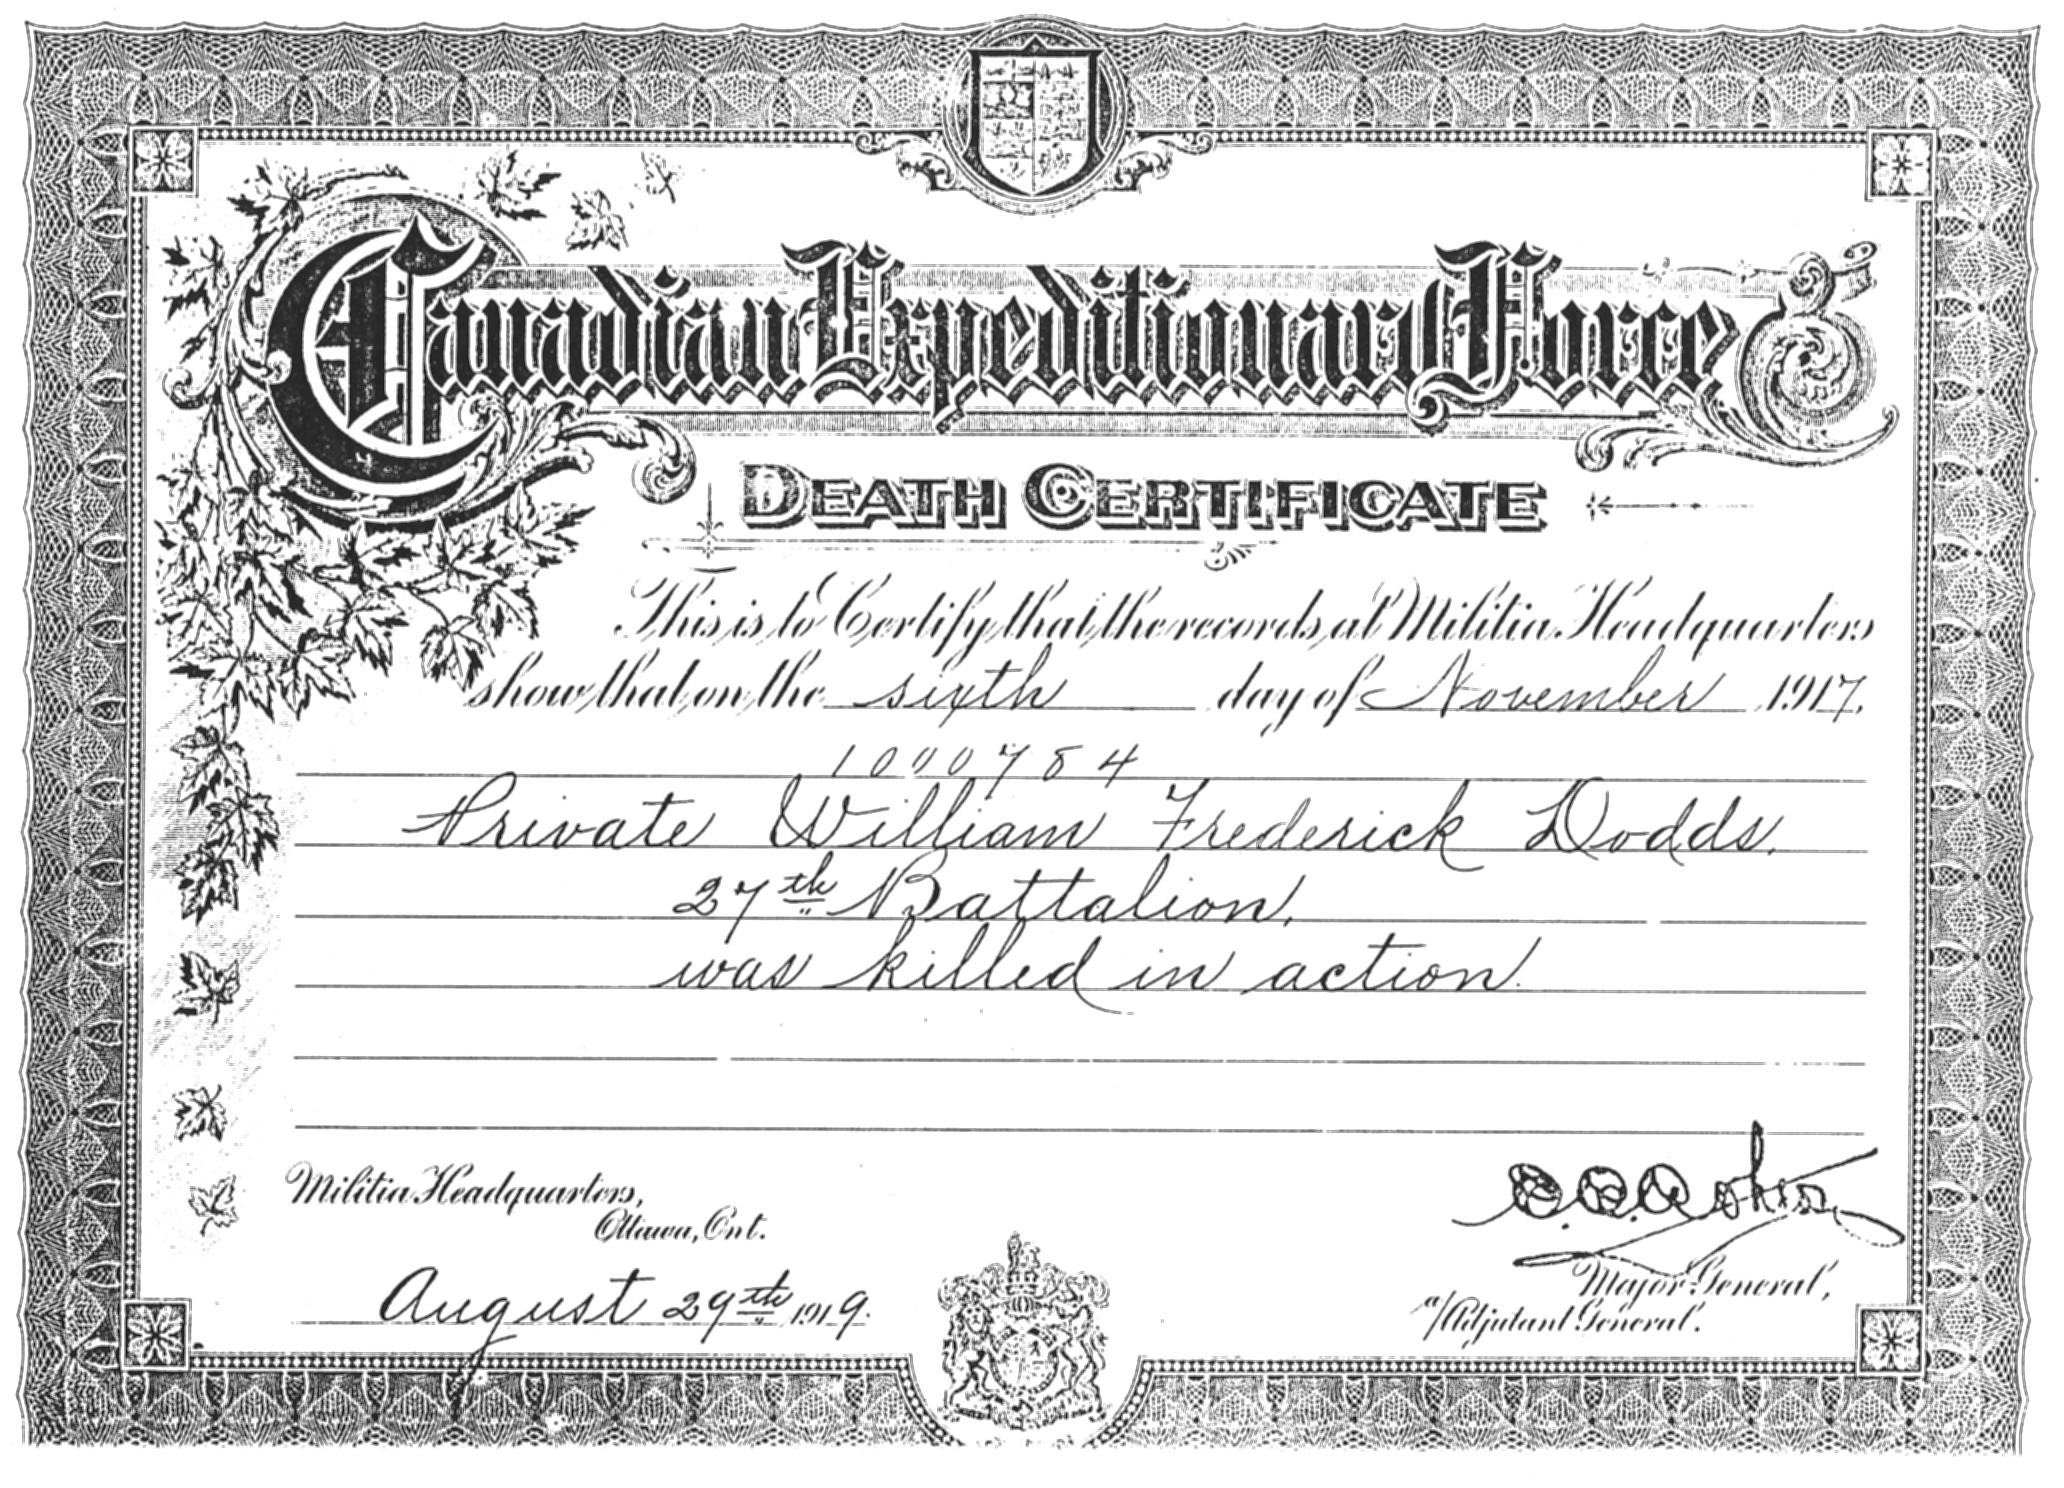 Canadian Expeditionary Force
DEATH CERTIFICATE
This is to Certify that the records at Militia Headquarters
show that on the sixth day of November 1917.
1000784
Private William Frederick Dodds.
27th Battalion,
was killed in action.
Militia Headquarters,
Ottawa, Ont.
August 29th 1919.
Major-General,
a/Adjutant General.